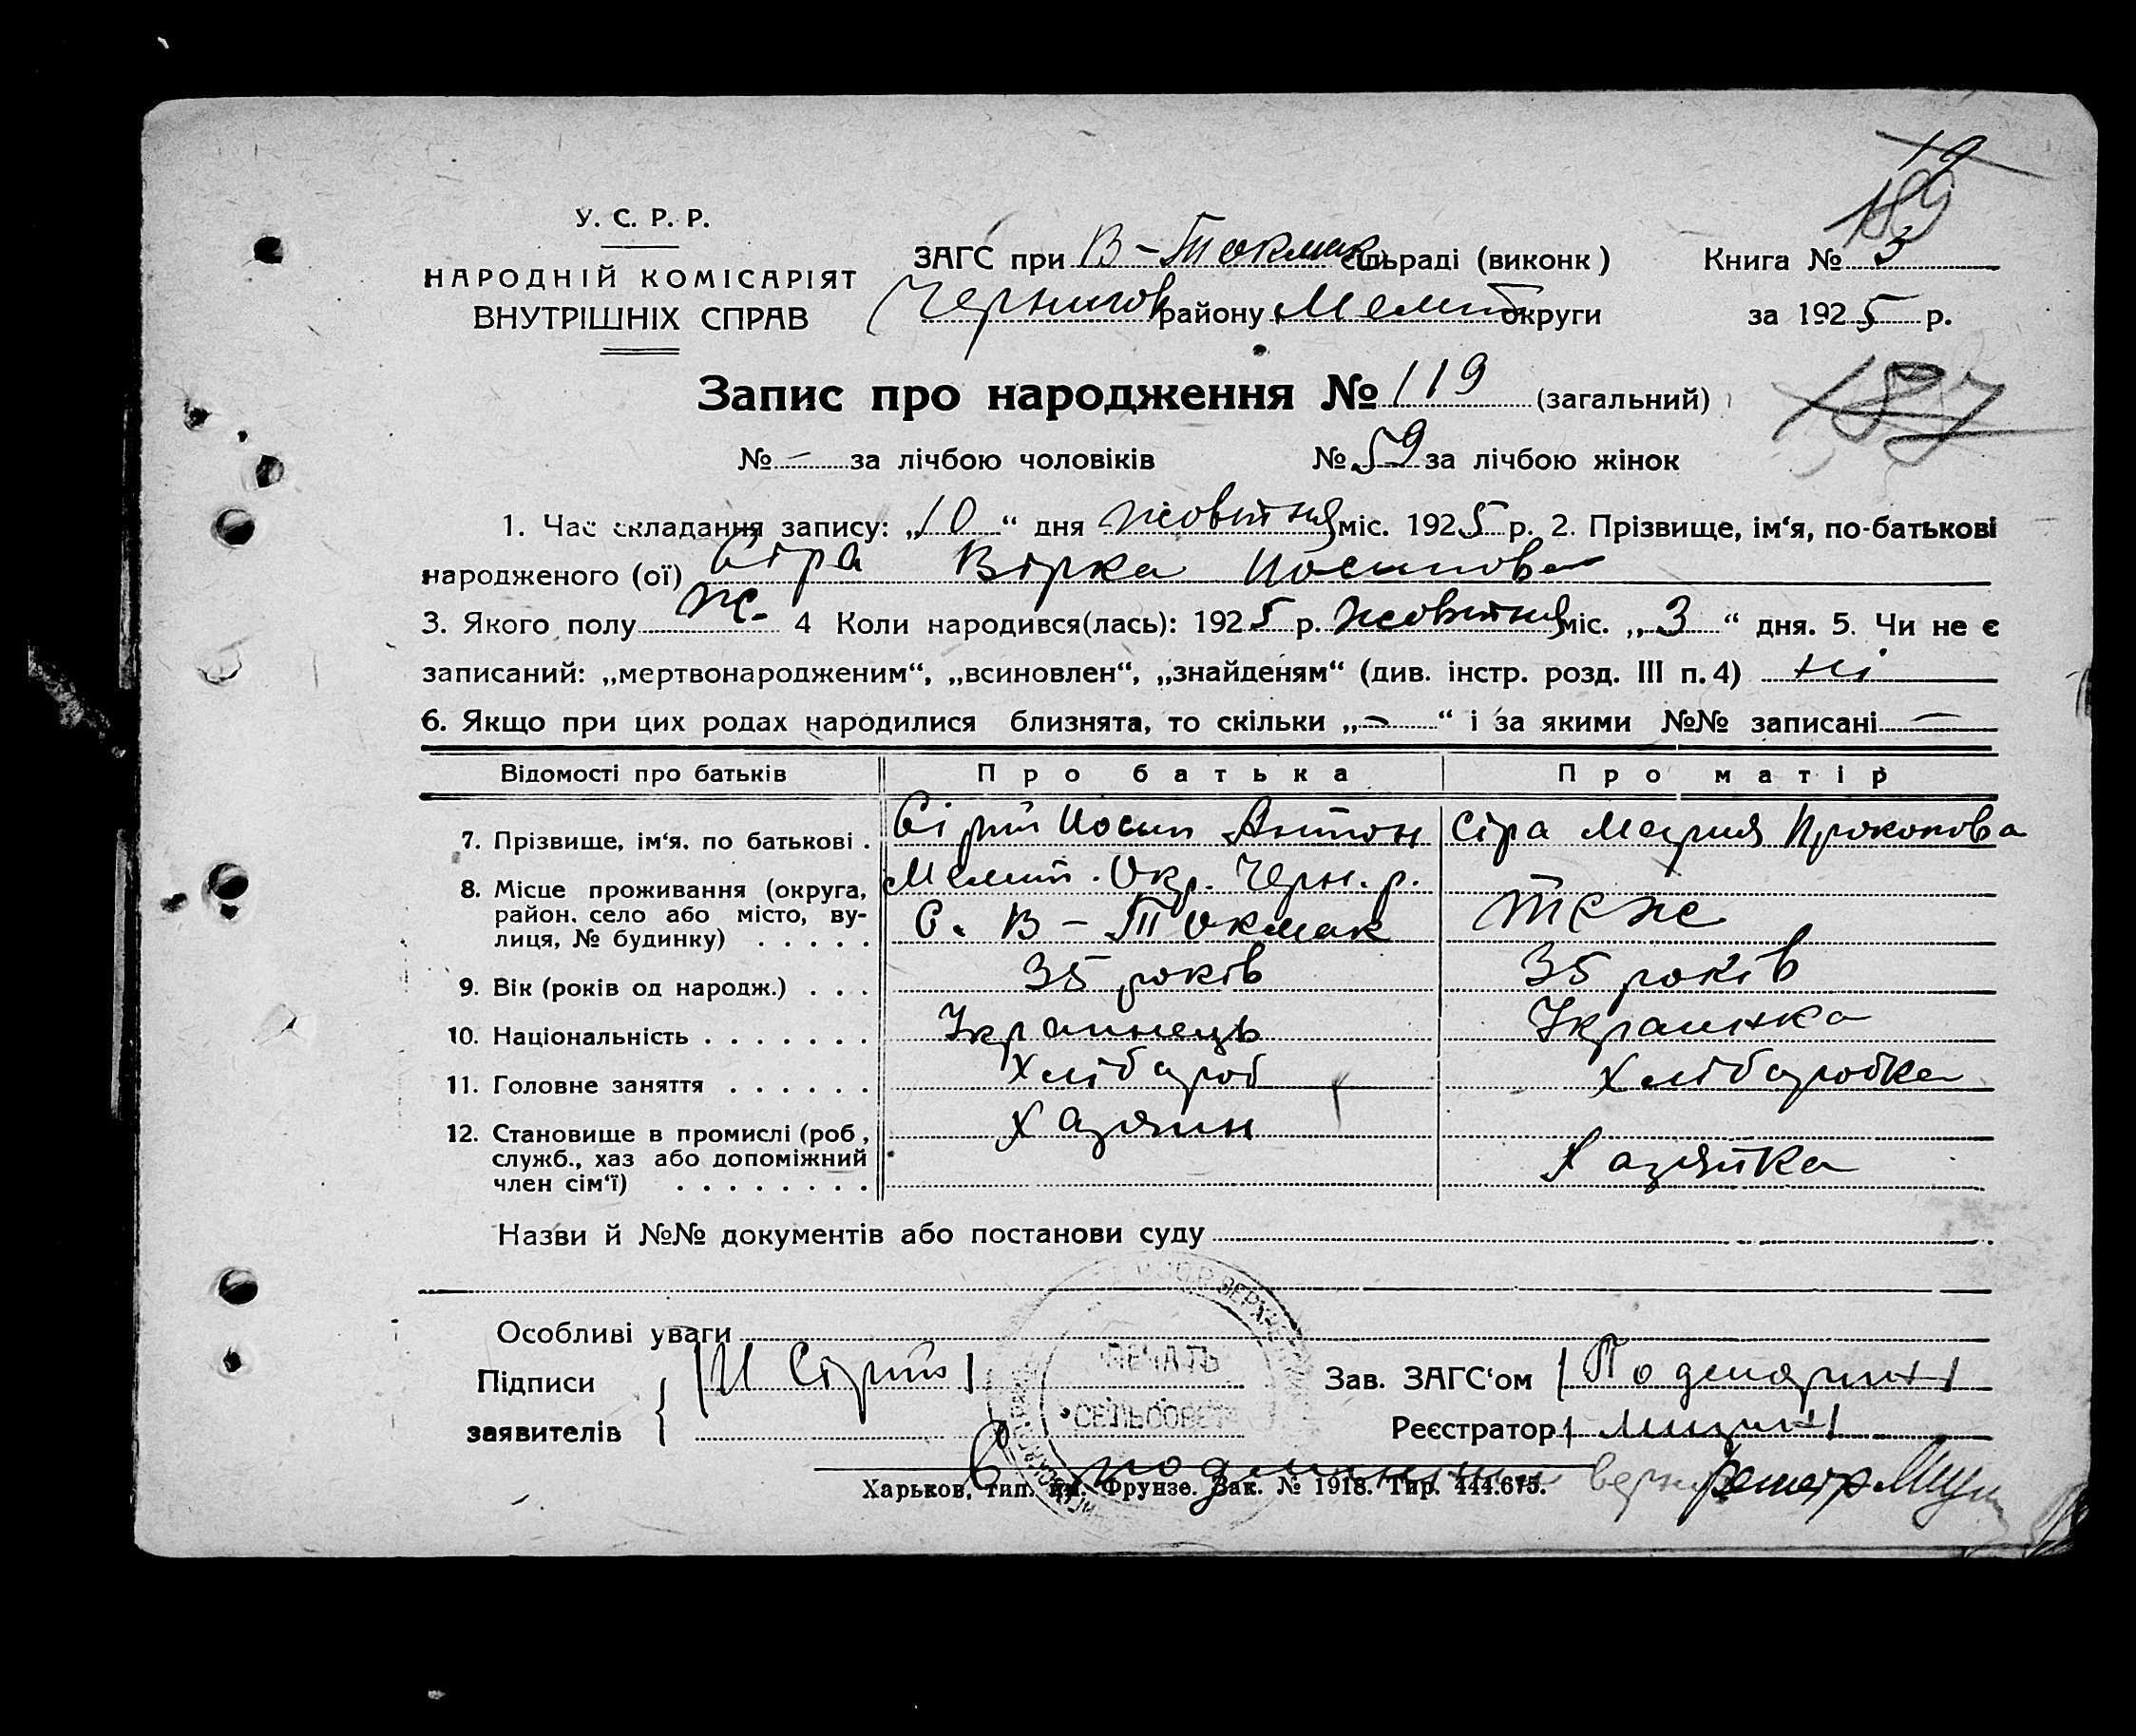 19
189
У. С. Р. Р.
НАРОДНІЙ КОМІСАРІЯТ
ВНУТРІШНІХ СПРАВ
ЗАГС при В-Токмак сільраді (виконк) Книга № 3
Чернигов району Мелит округи за 1925 р.
Запис про народження № 119 (загальний)
187
№ - за лічбою чоловіків № 59 за лічбою жінок
1. Час складання запису: „10“ дня жовтня міс. 1925 р. 2. Прізвище, ім‘я, по-батькові
народженого (ої) Сіра Вірка Йосипова
3. Якого полу ж. 4 Коли народився(лась): 1925 р. жовтня міс. „3“ дня. 5. Чи не є
записаний: „мертвонародженим“, „всиновлен“, „знайденям“ (див. інстр. розд. III п. 4) ні
6. Якщо при цих родах народилися близнята, то скільки „-“ і за якими №№ записані -
Відомості про батьків Про батька Про матір
7. Прізвище, ім‘я, по батькові . Сірий Йосип Антон Сіра Мария Прокопова
8. Місце проживання (округа, район, село або місто, вулиця, № будинку) . . . . . Мелит. Окр. Черн. р.
С. В-Токмак теж
9. Вік (років од народж.) . . . 35 років 35 років
10. Національність . . . . . . . Украинець Украинка
11. Головне заняття . . . . . . Хлібароб Хлібаробка
12. Становище в промислі (роб, Хазяин
служб., хаз або допоміжний Хазяйка
член сім‘ї) . . . . . . . .
Назви й №№ документів або постанови суду
Особливі уваги
Підписи И Сірий Зав. ЗАГС‘ом
заявителів Реєстратор
ПЕЧАТЬ
СЕЛЬСОВЕТА
С подлинным верно
Харьков, тип. им. Фрунзе. Зак. № 1918. Тир. 444.675.